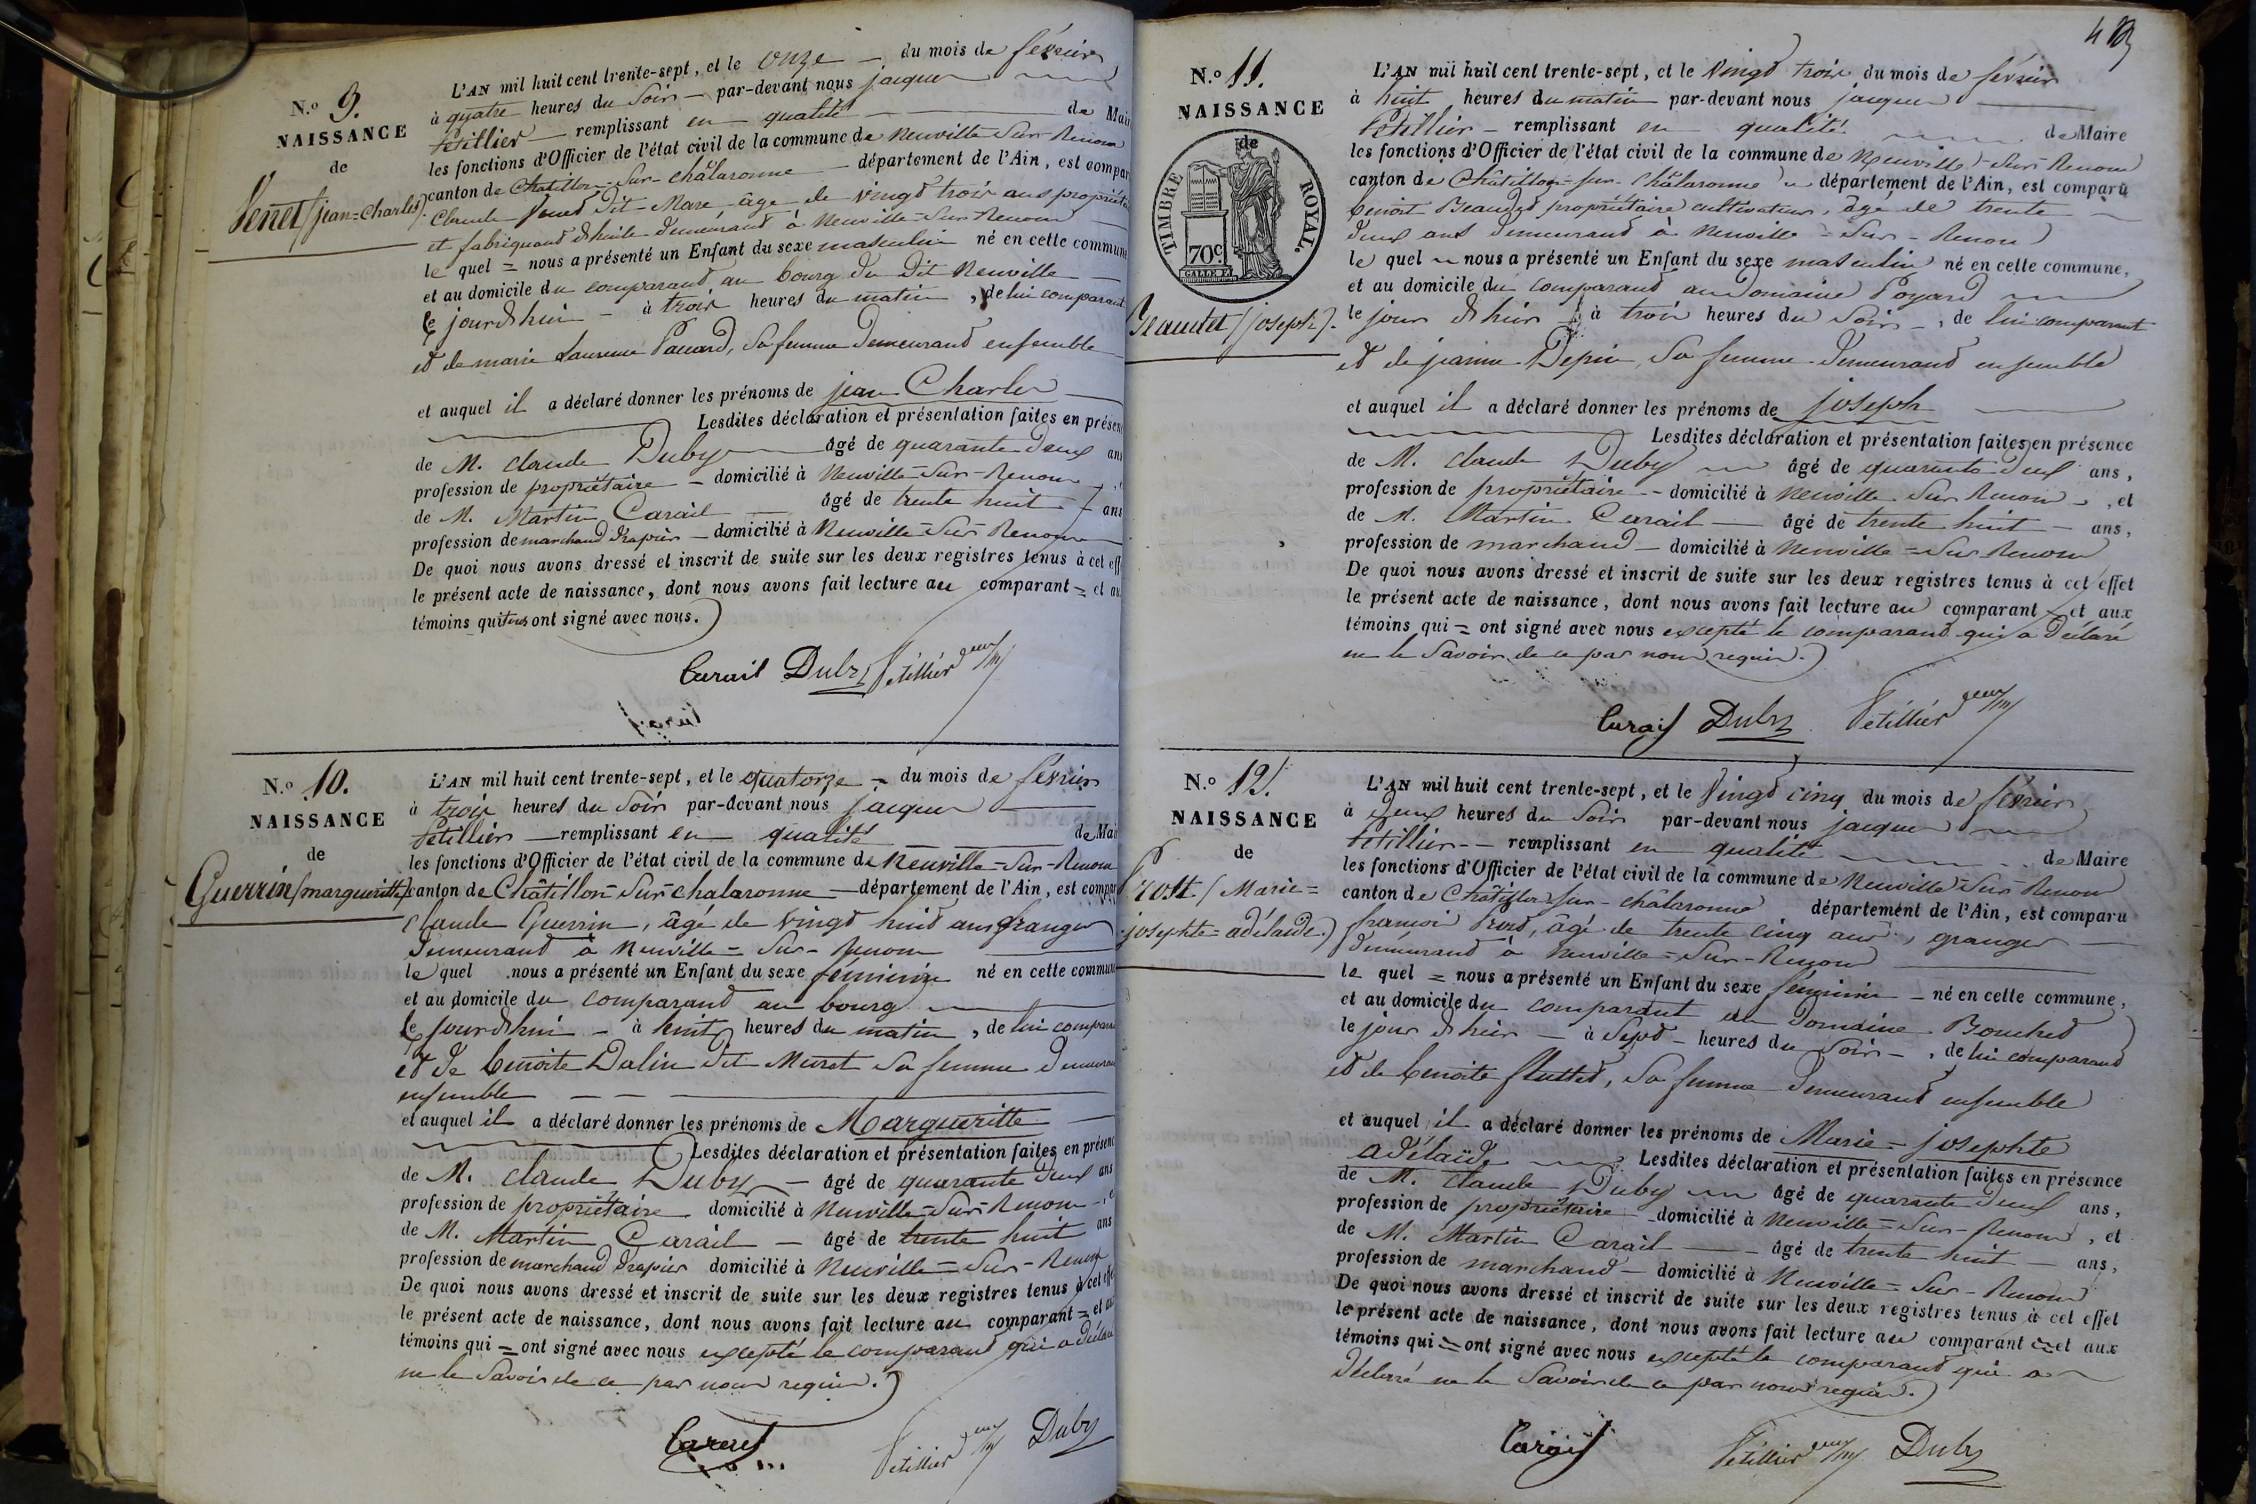 N.o 9.
NAISSANCE
de
Venet (jean=Charles).
L'AN mil huit cent trente-sept, et le onze — du mois de février
à quatre heures du Soir — par-devant nous jacques
Petillier — remplissant en — qualité — de Mair
les fonctions d'Officier de l'état civil de la commune de Neuville-Sur-Renom
canton de Châtillon-Sur-châlaronne — département de l'Ain, est compar
Claude Venet dit-Mare âgé de vingt trois ans propriéta
et fabriquant d'huile demeurant à Neuville-Sur-Renom
le quel = nous a présenté un Enfant du sexe masculin né en cette commune
et au domicile du comparant au bourg du dit Neuville
le jourdhui — à trois heures du matin, de lui comparant
et de marie Laurence Pauard, Sa femme demeurant ensemble
et auquel il a déclaré donner les prénoms de jean Charles
Lesdites déclaration et présentation faites en présen
de M. claude Duby — âgé de quarante deux ans
profession de propriétaire — domicilié à Neuville-Sur-Renom
de M. Martin Carail — âgé de trente huit — ans
profession de marchand drapier — domicilié à Neuville-Sur-Renom
De quoi nous avons dressé et inscrit de suite sur les deux registres tenus à cet eff
le présent acte de naissance, dont nous avons fait lecture au comparant = et au
témoins qui tous ont signé avec nous.
Carail Duby Petillier
N.o 10.
NAISSANCE
de
Guerrin (margueritte)
L'AN mil huit cent trente-sept, et le quatorze — du mois de février
à trois heures du Soir par-devant nous jacques
Petillier — remplissant en — qualité — de Mair
les fonctions d'Officier de l'état civil de la commune de Neuville-Sur-Renom
canton de Châtillon-Sur-chalaronne — département de l'Ain, est compar
Claude Guerrin, âgé de vingt huit ans granger
demeurant à Neuville=Sur-Renom
le quel nous a présenté un Enfant du sexe féminin né en cette commun
et au domicile du comparant au bourg
le jourdhui — à huit heures du matin, de lui compara
et de Benoite Dalin dit Muret Sa femme demeurant
ensemble
et auquel il a déclaré donner les prénoms de Margueritte
Lesdites déclaration et présentation faites en présenc
de M. claude Duby — âgé de quarante deux ans
profession de propriétaire domicilié à Neuville-Sur-Renom
de M. Martin Carail — âgé de trente huit ans
profession de marchand drapier domicilié à Neuville=Sur-Renom
De quoi nous avons dressé et inscrit de suite sur les deux registres tenus à cet effe
le présent acte de naissance, dont nous avons fait lecture au comparant = et au
témoins qui = ont signé avec nous excepté le comparant qui a déclaré
ne le Savoir de ce par nous requis.
Carail Petillier Duby
43
N.o 11.
NAISSANCE
de
TIMBRE ROYAL.
70c.
Beaudet (joseph).
L'AN mil huit cent trente-sept, et le vingt trois du mois de février
à huit heures du matin par-devant nous jacques
Petillier — remplissant en qualité — de Maire
les fonctions d'Officier de l'état civil de la commune de Neuville-Sur-Renom
canton de Châtillon-sur-châlaronne département de l'Ain, est comparu
Benoit Beaudet propriétaire cultivateur, âgé de trente
deux ans demeurant à Neuville=Sur-Renom
le quel nous a présenté un Enfant du sexe masculin né en cette commune,
et au domicile du comparant au Domaine Poyard
le jour d'hier à trois heures du Soir —, de lui comparant
et de jeanne Depin, Sa femme demeurant ensemble
et auquel il a déclaré donner les prénoms de joseph
Lesdites déclaration et présentation faites en présence
de M. claude Duby âgé de quarante deux ans,
profession de propriétaire — domicilié à Neuville Sur Renom, et
de M. Martin Carail — âgé de trente huit — ans,
profession de marchand — domicilié à Neuville=Sur Renom
De quoi nous avons dressé et inscrit de suite sur les deux registres tenus à cet effet
le présent acte de naissance, dont nous avons fait lecture au comparant et aux
témoins qui = ont signé avec nous excepté le comparant qui a déclaré
ne le Savoir de ce par nous requis.
Carail Duby Petillier
N.o 12.
NAISSANCE
de
Prost (Marie=
josephte=adélaïde.)
L'AN mil huit cent trente-sept, et le vingt cinq du mois de février
à deux heures du Soir par-devant nous jacques
Petillier — remplissant en qualité — de Maire
les fonctions d'Officier de l'état civil de la commune de Neuville=Sur-Renom
canton de Châtillon sur-châlaronne département de l'Ain, est comparu
françois Prost, âgé de trente cinq ans, granger
demeurant à Neuville=Sur-Renom
le quel = nous a présenté un Enfant du sexe féminin — né en cette commune,
et au domicile du comparant au Domaine Bouchet
le jour d'hier — à Sept — heures du Soir —, de lui comparant
et de Benoite fluttet, Sa femme demeurant ensemble
et auquel il a déclaré donner les prénoms de Marie=josephte
adélaïde Lesdites déclaration et présentation faites en présence
de M. claude Duby âgé de quarante deux ans,
profession de propriétaire — domicilié à Neuville=Sur-Renom, et
de M. Martin Carail — âgé de trente huit — ans,
profession de marchand — domicilié à Neuville=Sur-Renom
De quoi nous avons dressé et inscrit de suite sur les deux registres tenus à cet effet
le présent acte de naissance, dont nous avons fait lecture au comparant = et aux
témoins qui = ont signé avec nous excepté le comparant qui a
déclaré ne le Savoir de ce par nous requis.
Carail Petillier Duby